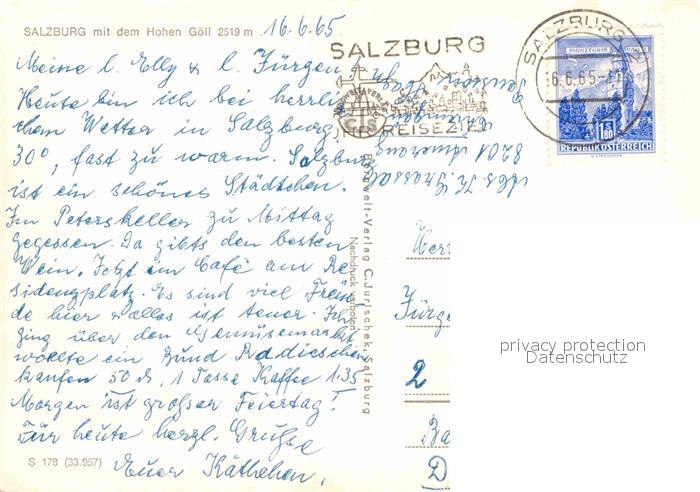 SALZBURG mit dem Hohen Göll 2519 m 16.6.65
Meine l. Elly & l. Jürgen!
Heute bin ich bei herrli
chen Wetter in Salzburg,
30°, fast zu warm. Salzburg
ist ein schönes Städtchen.
Im Peterskeller zu Mittag
gegessen. Da gibts den besten
Wein. Jetzt im Café am Re
sidenzplatz. Es sind viel Frem
de hier & alles ist teuer. Ich
ging über den Gemüsemarkt
wollte ein Bund Radieschen
kaufen 50 d, 1 Tasse Kaffee 1.35
Morgen ist großer Feiertag!
Für heute herzl. Grüße
Euer Käthchen.
S 178 (33.957)
SALZBURG
IHR REISEZIEL
SALZBURG 2
16.6.65
MÜNZTURM HALL
1.80
REPUBLIK ÖSTERREICH
8201
Bergwelt-Verlag C. Jurischek, Salzburg
Nachdruck verboten
Jürge
2
Ba
D
privacy protection
Datenschutz